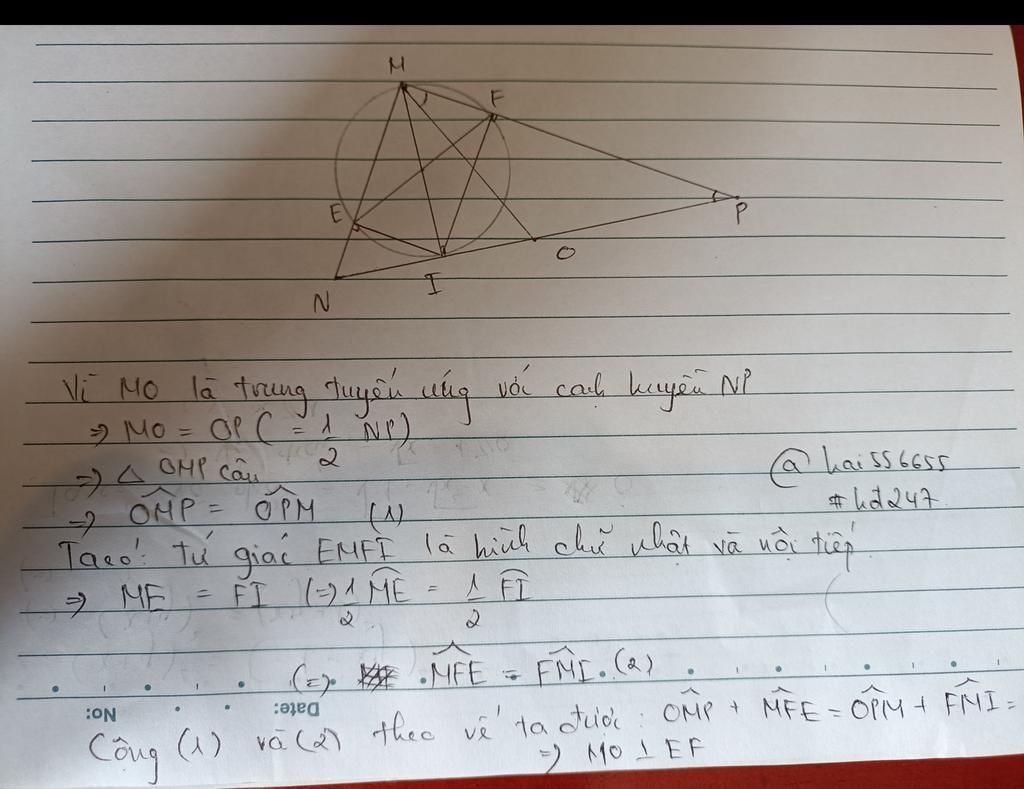 M
F
E
P
O
I
N
Vì MO là trung tuyến ứng với cạnh huyền NP
⇒ MO = OP ( = 1/2 NP)
⇒ △ OMP cân
@hai556655
⇒ OMP^ = OPM^ (1)
#hd247
Ta có: tứ giác EMFI là hình chữ nhật và nội tiếp
⇒ ME = FI (⇒ 1/2 ME^ = 1/2 FI^
(=) MFE^ = FMI^ (2)
No:
Date:
Cộng (1) và (2) theo vế ta được: OMP^ + MFE^ = OPM^ + FMI^ =
⇒ MO ⊥ EF